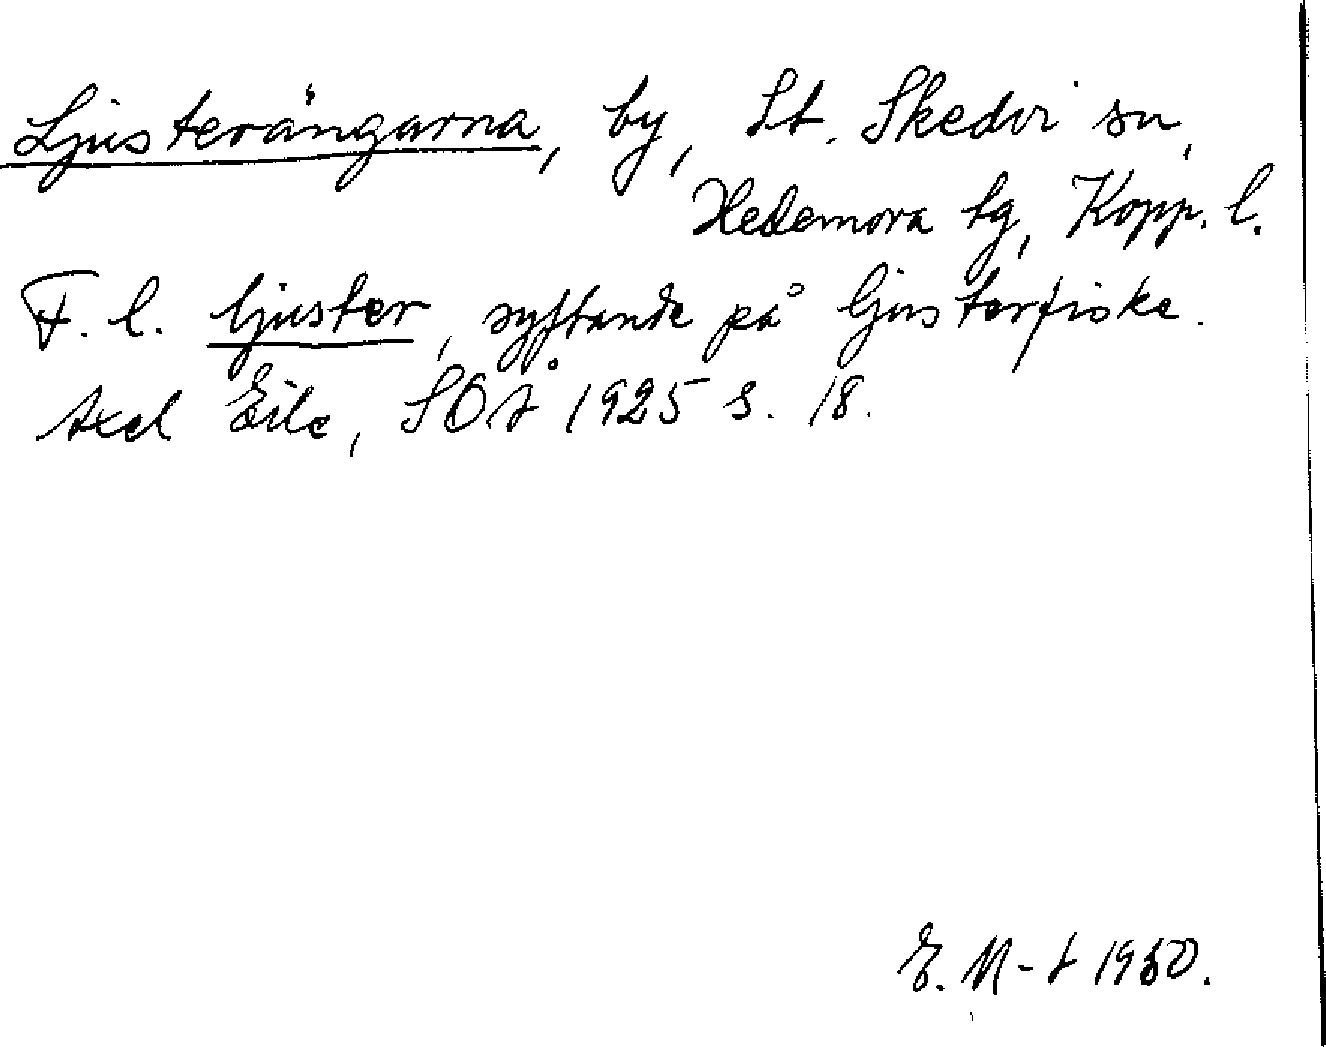 Ljusterängarna, by, St. Skedvi sn,
Hedemora tg, Kopp. l.
F. l. ljuster, syftande på ljusterfiske.
Axel Eile, SOÅ 1925 s. 18.
E. M-t 1950.